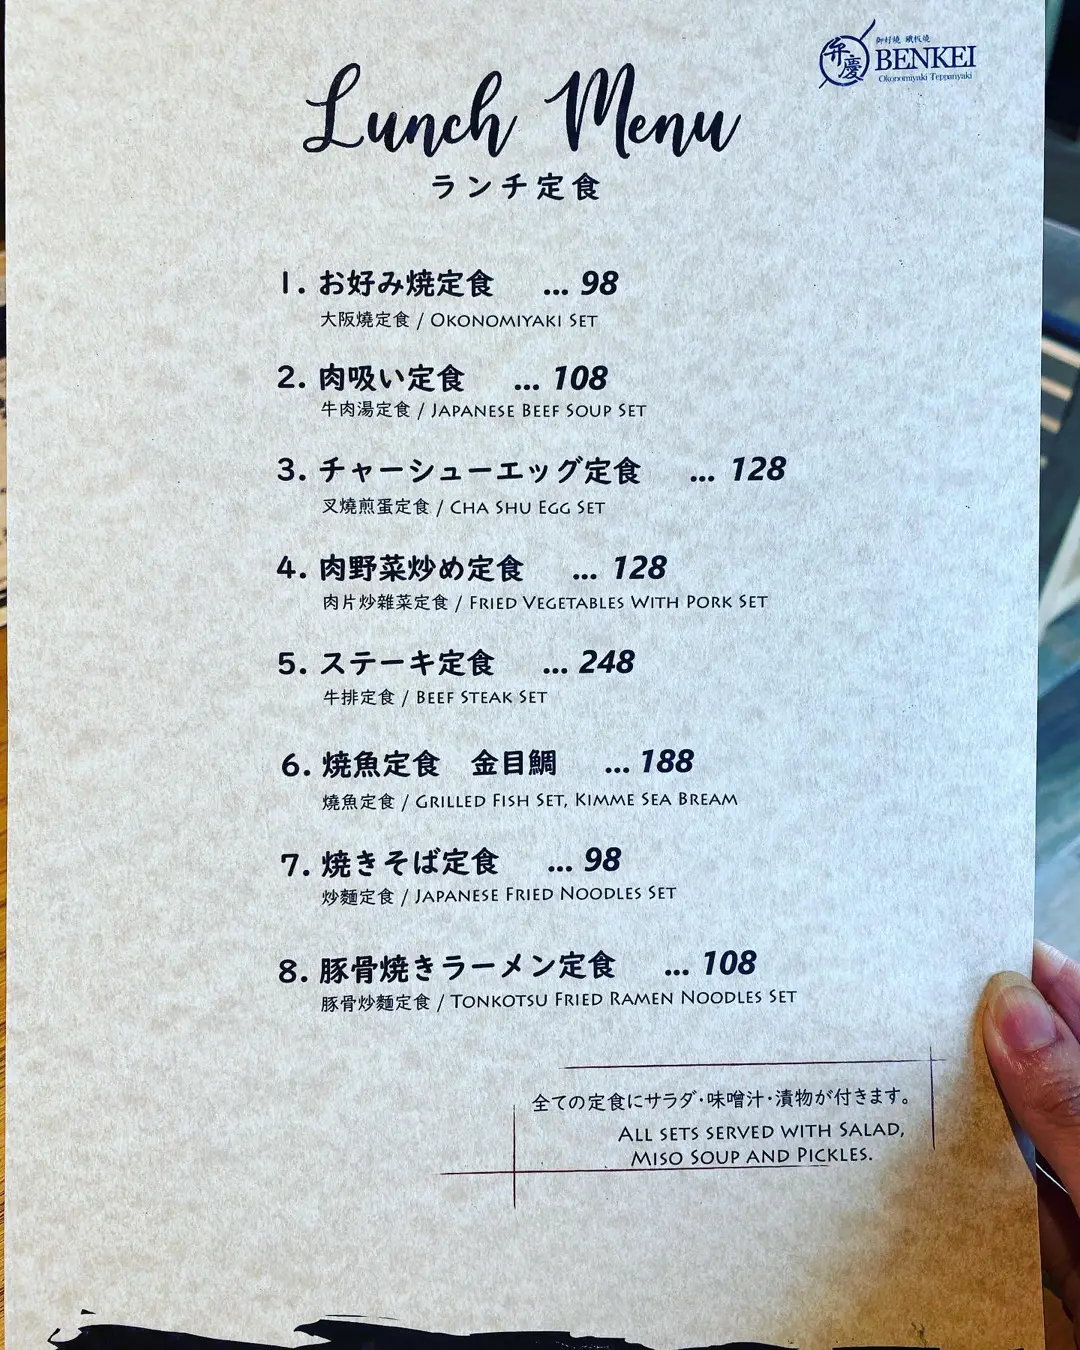 弁慶
BENKEI
Okonomiyaki Teppanyaki
Lunch Menu
ランチ定食
1. お好み焼定食 ... 98
大阪燒定食 / OKONOMIYAKI SET
2. 肉吸い定食 ... 108
牛肉湯定食 / JAPANESE BEEF SOUP SET
3. チャーシューエッグ定食 ... 128
叉燒煎蛋定食 / CHA SHU EGG SET
4. 肉野菜炒め定食 ... 128
肉片炒雜菜定食 / FRIED VEGETABLES WITH PORK SET
5. ステーキ定食 ... 248
牛排定食 / BEEF STEAK SET
6. 焼魚定食 金目鯛 ... 188
燒魚定食 / GRILLED FISH SET, KIMME SEA BREAM
7. 焼きそば定食 ... 98
炒麵定食 / JAPANESE FRIED NOODLES SET
8. 豚骨焼きラーメン定食 ... 108
豚骨炒麵定食 / TONKOTSU FRIED RAMEN NOODLES SET
全ての定食にサラダ・味噌汁・漬物が付きます。
ALL SETS SERVED WITH SALAD,
MISO SOUP AND PICKLES.